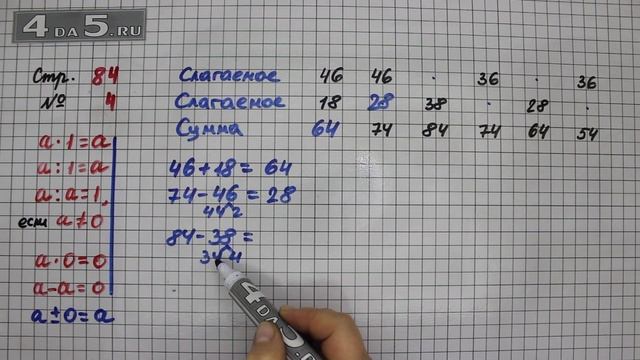 4 DA 5.RU
Стр. 84
№ 4
a · 1 = a
a : 1 = a
a : a = 1,
если a ≠ 0
a · 0 = 0
a - a = 0
a ± 0 = a
Слагаемое 46 46 · 36 · 36
Слагаемое 18 28 38 · 28 ·
Сумма 64 74 84 74 64 54
46 + 18 = 64
74 - 46 = 28
44 2
84 - 38 =
34 4
4 DA 5.RU